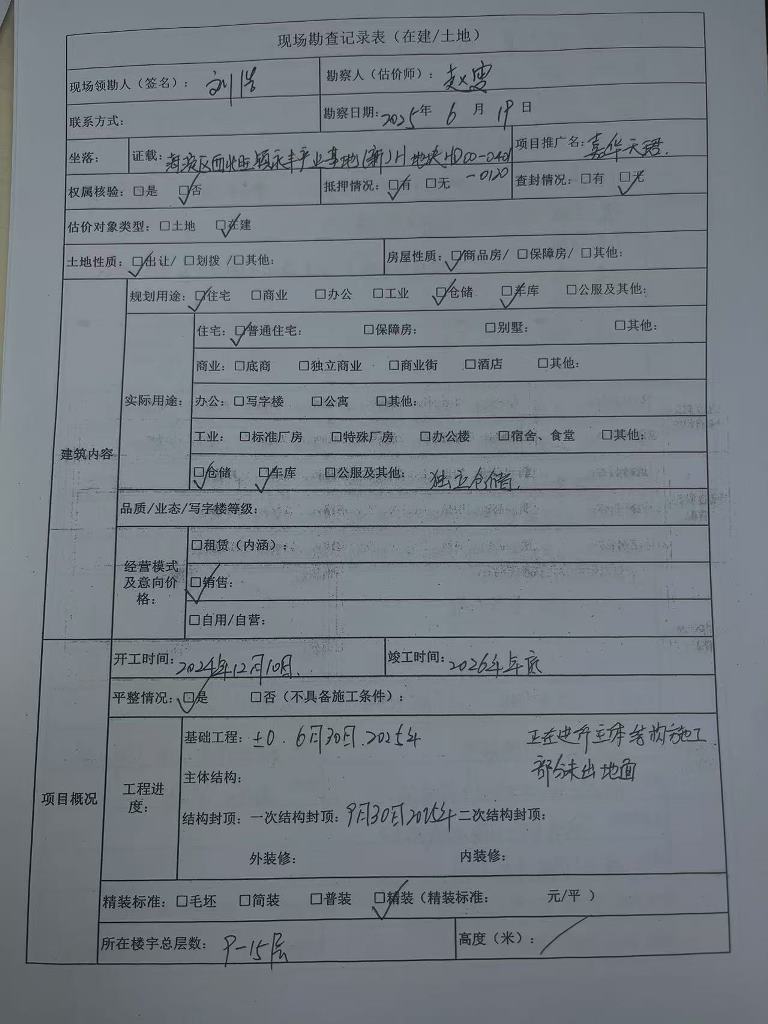 现场勘查记录表（在建/土地）
现场领勘人（签名）： 刘浩 勘察人（估价师）： 赵雪
联系方式： 勘察日期：2025年 6 月 19 日
坐落： 证载：海淀区西北旺镇永丰产业基地(新)H地块HD00-0401-0120 项目推广名：嘉华天珺
权属核验：□是 ☑否 抵押情况：☑有 □无 查封情况：□有 ☑无
估价对象类型：□土地 ☑在建
土地性质：☑出让/ □划拨 /□其他： 房屋性质：☑商品房/ □保障房/ □其他：
建筑内容
规划用途：☑住宅 □商业 □办公 □工业 ☑仓储 ☑车库 □公服及其他：
实际用途：
住宅：☑普通住宅： □保障房： □别墅： □其他：
商业：□底商 □独立商业 □商业街 □酒店 □其他：
办公：□写字楼 □公寓 □其他：
工业：□标准厂房 □特殊厂房 □办公楼 □宿舍、食堂 □其他：
☑仓储 ☑车库 □公服及其他： 独立仓储
品质/业态/写字楼等级：
经营模式及意向价格：
□租赁（内涵）：
☑销售：
□自用/自营：
项目概况
开工时间：2024年12月10日. 竣工时间：2026年年底
平整情况：☑是 □否（不具备施工条件）：
工程进度：
基础工程：±0. 6月30日.2025年 正在进行主体结构施工.
部分未出地面
主体结构：
结构封顶：一次结构封顶：9月30日2025年 二次结构封顶：
外装修： 内装修：
精装标准：□毛坯 □简装 □普装 ☑精装（精装标准： 元/平 ）
所在楼宇总层数：9-15层 高度（米）：/